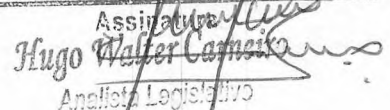 Assinatura
Hugo Walter Carneiro
Analista Legislativo